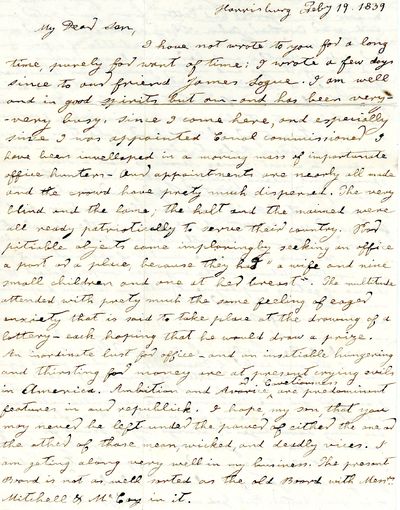 Harrisburg Feby 19. 1839
My Dear Son,
I have not wrote to you for a long
time, purely for want of time; I wrote a few days
since to our friend James Logue. I am well
and in good spirits but am and has been very-
-very busy. Since I came here, and especially
since I was appointed Canal commissioned I
have been invelloped in a moving mass of importunate
office hunters - Our appointments are nearly all made
and the crowd have prety much dispersed. The very
blind and the lame, the halt and the maimed were
all ready patriotically to serve their country. Poor
pitiable objects came imploringly seeking an office
a post or a place because they had "a wife and nine
small children and one at her breast". The multitude
attended with prety much the same feeling of eager
anxiety that is said to take place at the drawing of a
lottery - each hoping that he would draw a prize.
An inordinate lust for office - and an insatiable hungering
and thirsting for money are at present crying evils
in America. Ambition and Avarice Covetiousness are predominant
features in our republick. I hope, my son, that you
may never be left under the power of either the one or
the other of those mean, wicked, and deadly vices. I
am geting along very well in my business. The present
Board is not as well sorted as the old Board with Messrs
Mitchell & McCoy in it.